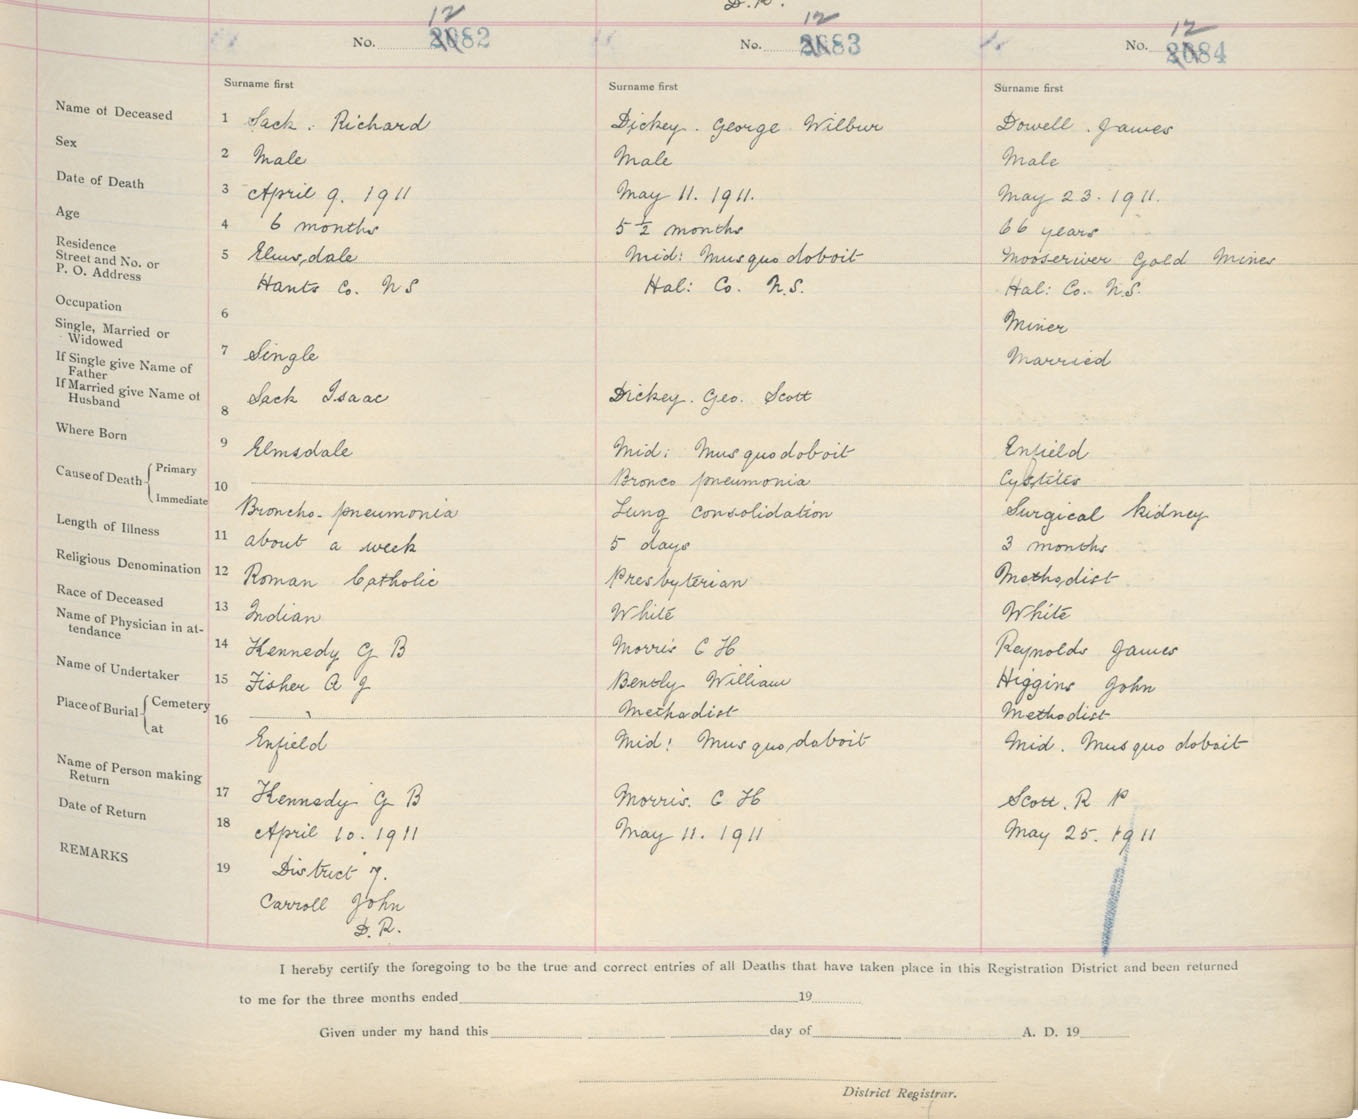 D.R.
12 12 12
No. 2082 No. 2083 No. 2084
Surname first Surname first Surname first
Name of Deceased 1 Sack. Richard Dickey. George Wilbur Dowell. James
Sex 2 Male Male Male
Date of Death 3 April 9. 1911 May 11. 1911. May 23. 1911.
Age 4 6 months 5 1/2 months 66 years
Residence
Street and No. or 5 Elmsdale Mid: Musquodoboit Mooseriver Gold Mines
P. O. Address Hants Co. NS Hal: Co. N.S. Hal: Co. N.S.
Occupation 6 Miner
Single, Married or
Widowed 7 Single Married
If Single give Name of
Father
If Married give Name of
Husband 8 Sack Isaac Dickey. Geo. Scott
Where Born 9 Elmsdale Mid: Musquodoboit Enfield
Cause of Death Primary 10 Bronco pneumonia Cystitis
Immediate Broncho-pneumonia Lung consolidation Surgical kidney
Length of Illness 11 about a week 5 days 3 months
Religious Denomination 12 Roman Catholic Presbyterian Methodist
Race of Deceased 13 Indian White White
Name of Physician in at-
tendance 14 Kennedy G B Morris C H Reynolds James
Name of Undertaker 15 Fisher A J Bently William Higgins John
Place of Burial Cemetery 16 Methodist Methodist
at Enfield Mid: Musquodoboit Mid. Musquodoboit
Name of Person making
Return 17 Kennedy G B Morris. C H Scott. R P
Date of Return 18 April 10. 1911 May 11. 1911 May 25. 1911
REMARKS 19 District 7.
Carroll John
D.R.
I hereby certify the foregoing to be the true and correct entries of all Deaths that have taken place in this Registration District and been returned
to me for the three months ended 19
Given under my hand this day of A. D. 19
District Registrar.